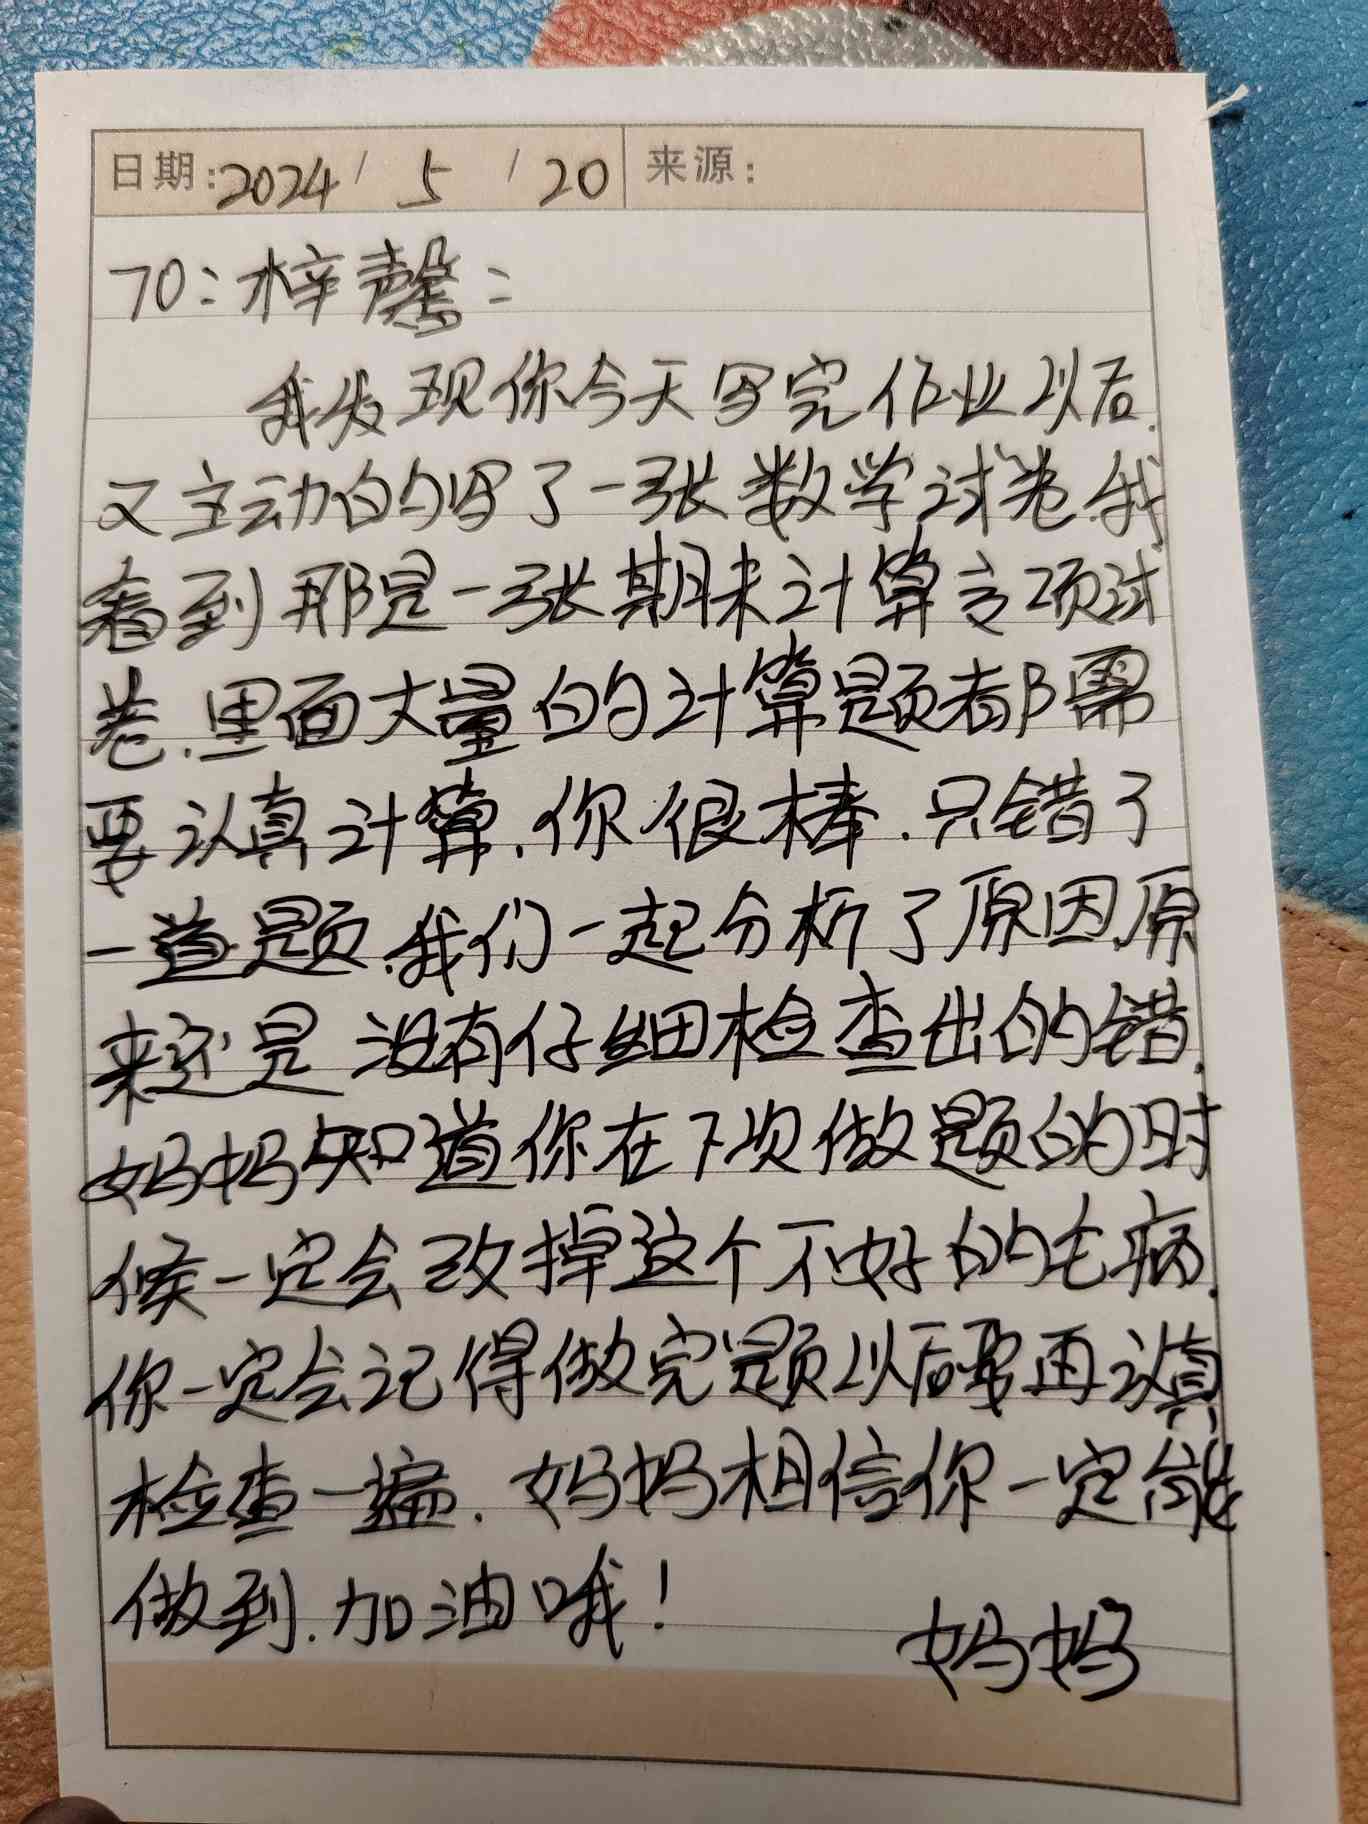 日期:2024/5/20 来源:
70:梓馨:
我发现你今天写完作业以后.
又主动的写了一张数学试卷.我
看到那是一张期末计算专项试
卷.里面大量的计算题都需
要认真计算.你很棒.只错了
一道题.我们一起分析了原因.原
来还是没有仔细检查出的错.
妈妈知道你在下次做题的时
候一定会改掉这个不好的毛病.
你一定会记得做完题以后要再认真
检查一遍.妈妈相信你一定能
做到.加油哦!
妈妈